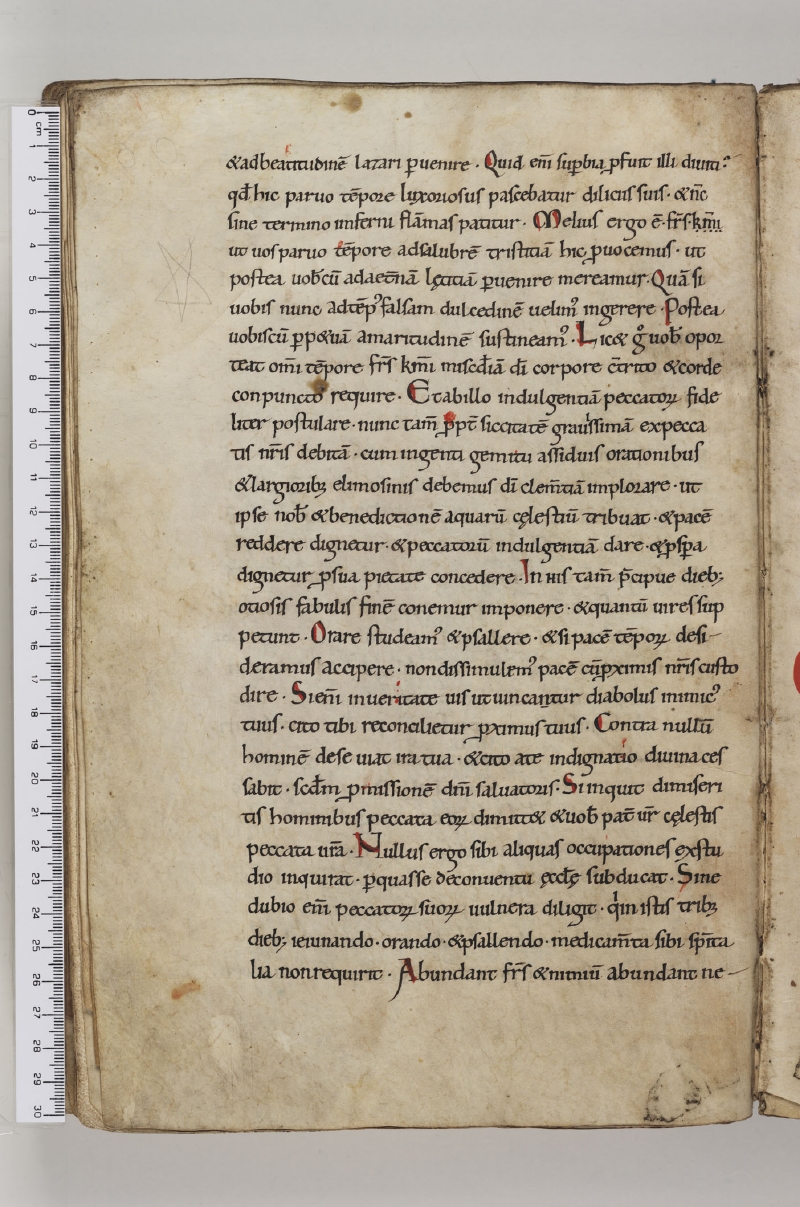 &adbeatitudinē lazari ꝑuenire · Quid em̄ suꝑbia ꝓfuit illi diuiti?
qđ hic paruo tēpore luxoriosus pascebatur diliciis suis · & nc̄
sine termino inferni flāmas patitur · Melius ergo ē · frs̄ · km̄i
ut uos paruo tēpore adsalubrē tristitiā hic ꝓuocemus · ut
postea uob̄cū adaet̄nā lętitiā ꝑuenire mereamur · Quā si
uobis nunc adtēpꝰ falsam dulcedinē uelimꝰ ingerere · Postea
uobiscū ꝑp&uā amaritudinē sustineamꝰ · Lic& gͦ uob̄ opor
teat om̄i tēpore frs̄ km̄i misc̄diā dī corpore c̄trito & corde
conpuncto require · Et abillo indulgentiā peccatoꝝ fide
liter postulare · nunc tam̄ ꝓpt̄ siccitatē grauissimā expecca
tis nr̄is debitā · cum ingenti gemitu assiduis orationibus
& largioribꝫ elimosinis debemus dī clem̄tiā implorare · ut
ipse nob̄ & benedictionē aquarū cęlestiū tribuat · & pacē
reddere dignetur · & peccatorū indulgentiā dare · & ꝓsꝑa
dignetur ꝓsua pietate concedere · In his tam̄ p̄cipue diebꝫ
otiosis fabulis finē conemur imponere · & quantū uires sup
petunt · Orare studeamꝰ & psallere · & si pacē tēpoꝝ desi-
deramus accipere · non dissimulemꝰ pacē cū ꝓximis nr̄is custo
dire · Si em̄ in ueritate uis ut uincantur diabolus inimicꝰ
tuus · cito tibi reconcilietur ꝓximus tuus · Contra nullū
hominē deseuiat ira tua · & cito a te indignatio diuina ces
sabit · scdm̄ ꝓmissionē dn̄i saluatoris · Si inquit dimiseri
tis hominibus peccata eoꝝ dimitt& & uob̄ pat̄ ur̄ cęlestis
peccata ur̄a · Nullus ergo sibi aliquas occupationes exstu
dio inquirat · ꝑ quas se deconuentu ęccłę subducat · Sine
dubio em̄ peccatoꝝ suoꝝ uulnera diligit · qͥ in istis tribꝫ
diebꝫ ieiunando · orando · & psallendo · medicam̄ta sibi sp̄ita
lia non requirit · Abundant frs̄ & nimiū abundant ne-